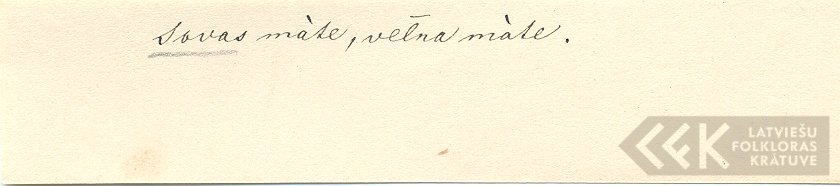 Sovas màte, vełna màte.
LATVIEŠU
FOLKLORAS
KRĀTUVE